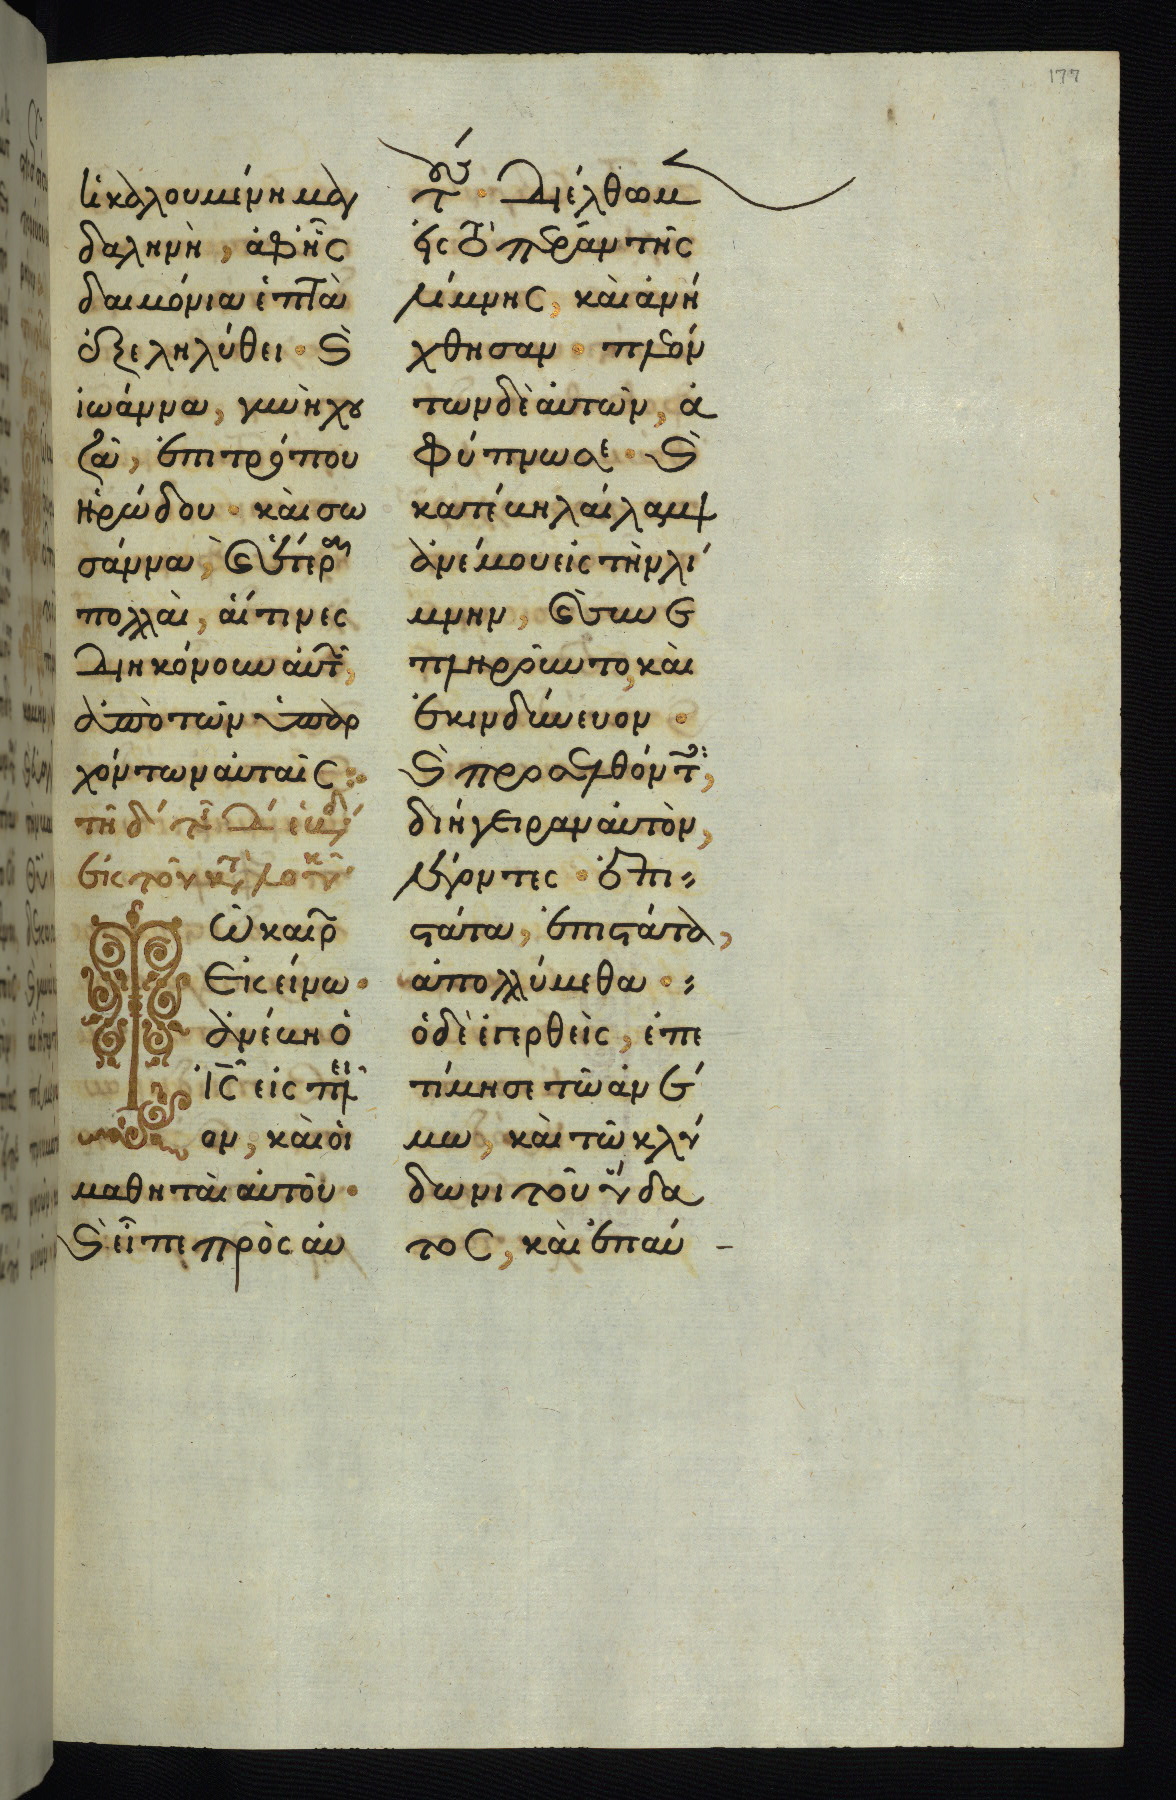 177
ἡ καλουμένη μαγ
δαληνὴ, ἀφ ἧς
δαιμόνια ἑπτὰ
ἐξεληλύθει · ϗ
ἰωάννα, γυνὴ χου
ζᾶ, ἐπιτρόπου
ἡρώδου · καὶ σω
σάννα, ϗ ἕτεραι
πολλαὶ, αἵτινες
διηκόνουν αὐτῶ,
ἀπὸ τῶν ὑπαρ
χόντων αὐταῖς :
τῆ δ΄
ἐκ τοῦ κατὰ λουκᾶν
Τῶ καιρ
ἐκείνω ·
ἀνέβη ὁ
ἰς εἰς πλοῖ
ον, καὶ οἱ
μαθηταὶ αὐτοῦ ·
ϗ εἶπε πρὸς αὐ
τούς · διέλθωμεν
εἰς τὸ πέραν τῆς
λίμνης, καὶ ἀνή
χθησαν · πλεόν
των δὲ αὐτῶν, ἀ
φύπνωσε · ϗ
κατέβη λαῖλαψ
ἀνέμου εἰς τὴν λί
μνην, ϗ συνε
πληροῦντο, καὶ
ἐκινδύνευον ·
ϗ προσελθόντες,
διήγειραν αὐτὸν,
λέγοντες · ἐπι
στάτα, ἐπιστάτα,
ἀπολλύμεθα ·
ὁ δὲ ἐγερθεὶς, ἐπε
τίμησε τῶ ἀνέ
μω, καὶ τῶ κλύ
δωνι τοῦ ὕδα
τος, καὶ ἐπαύ